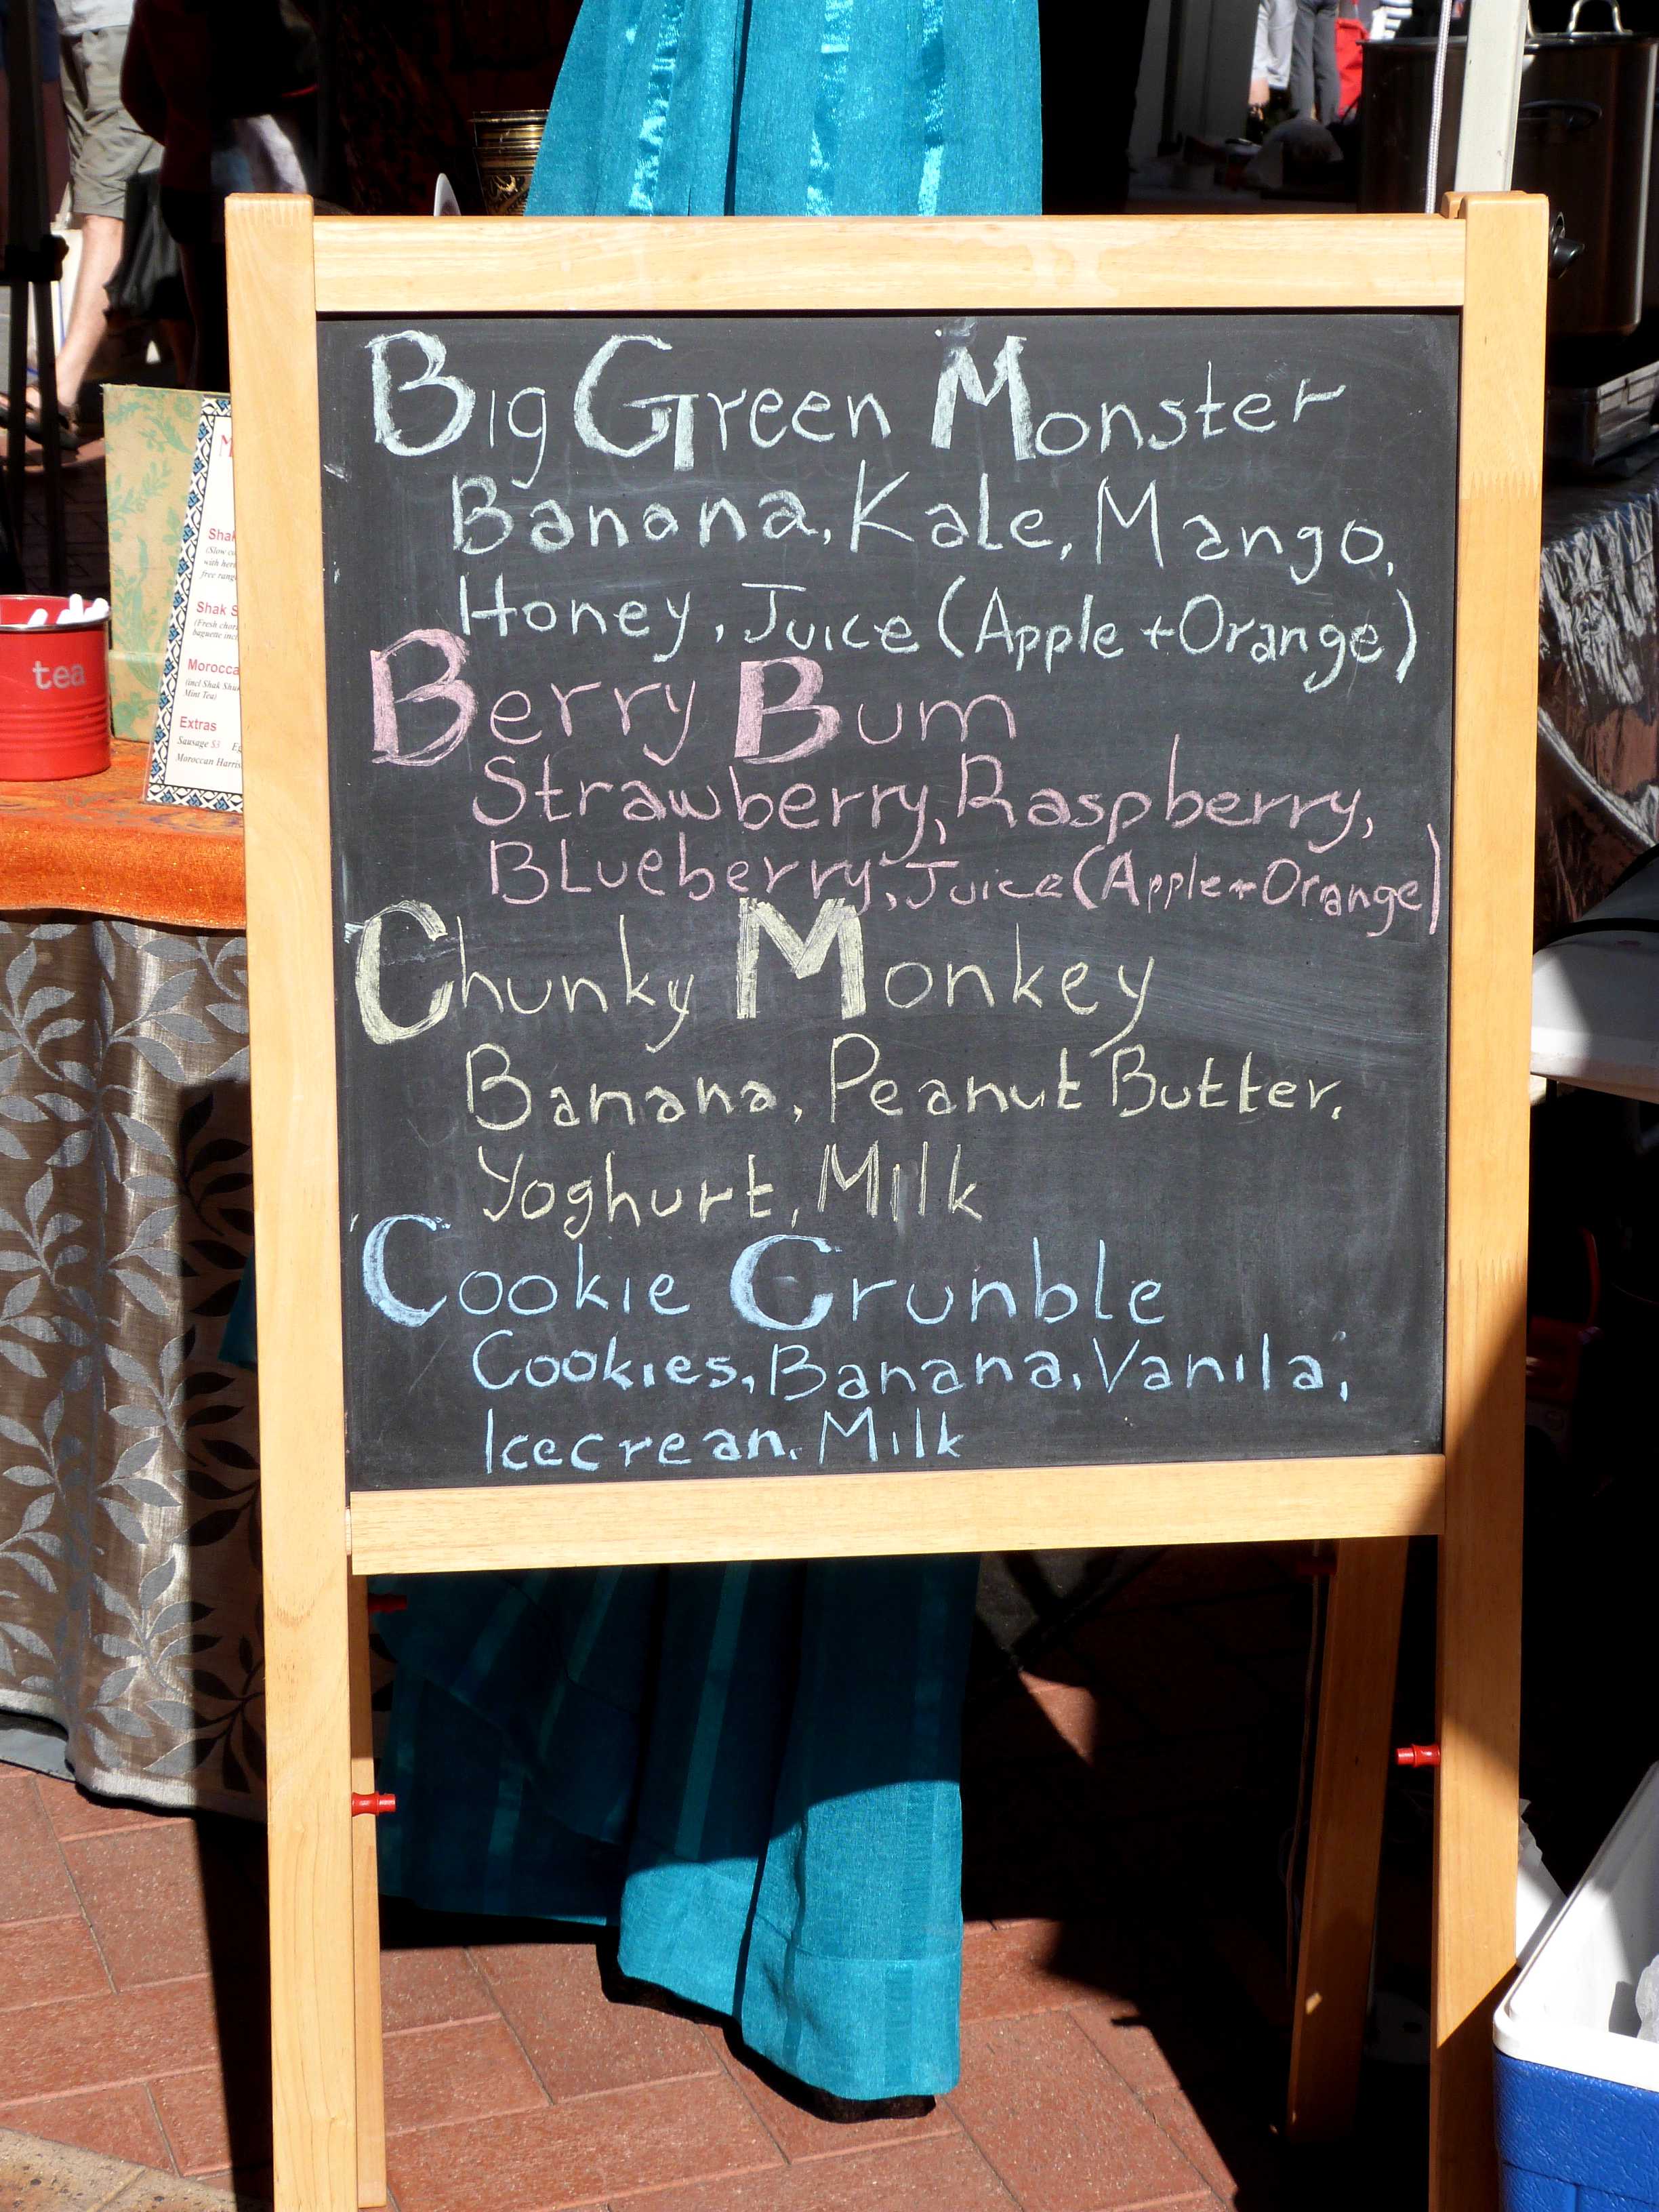 Big Green Monster
Banana, Kale, Mango,
Honey, Juice (Apple + Orange)
Berry Bum
Strawberry, Raspberry,
Blueberry, Juice (Apple + Orange)
Chunky Monkey
Banana, Peanut Butter,
Yoghurt, Milk
Cookie Crunble
Cookies, Banana, Vanila,
Icecrean, Milk
tea
Shak
(Slow
with
free
Shak S
(Fresh
baguette
Morocca
(incl Shak
Mint Tea)
Extras
Sausage $3
Moroccan